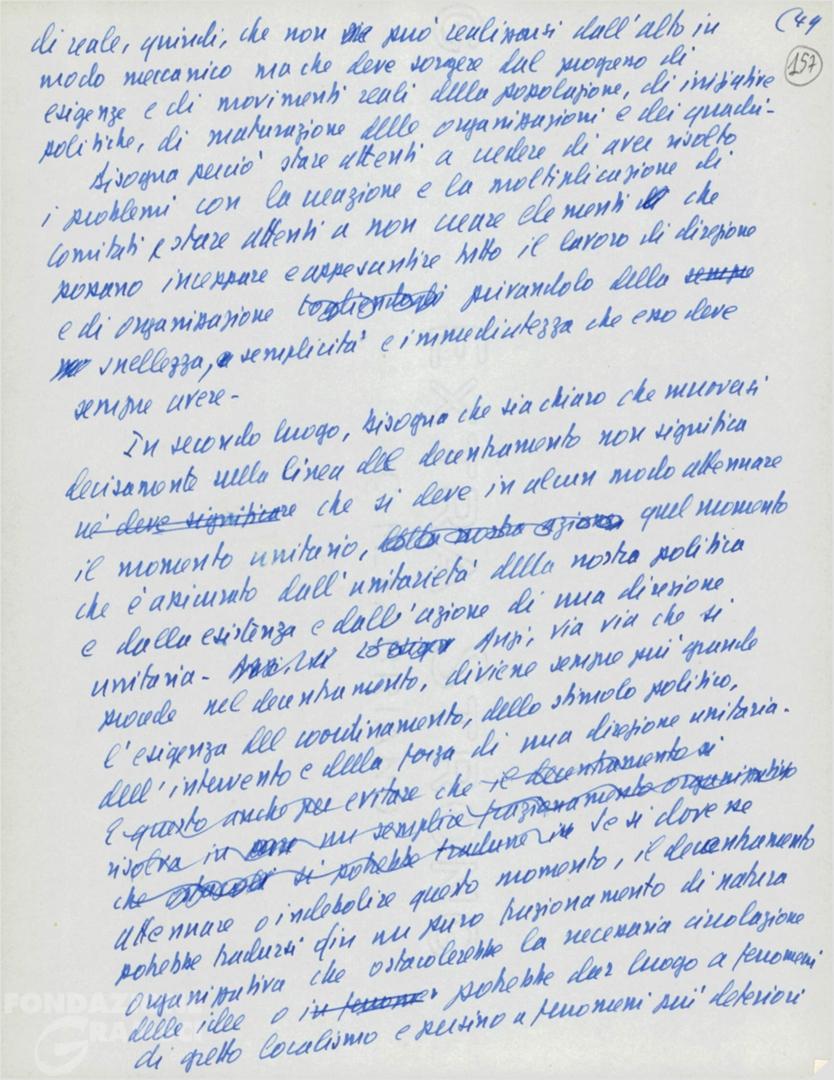 (49
157
di reale, quindi, che non può realizzarsi dall'alto in
modo meccanico ma che deve sorgere dal progresso di
esigenze e di movimenti reali della popolazione, di iniziative
politiche, di maturazione delle organizzazioni e dei quadri-
Bisogna perciò stare attenti a credere di aver risolto
i problemi con la creazione e la moltiplicazione di
comitati e stare attenti a non creare elementi che
possano inceppare e appesantire tutto il lavoro di direzione
e di organizzazione privandolo della sempre
snellezza, semplicità e immediatezza che esso deve
sempre avere-
In secondo luogo, bisogna che sia chiaro che muoversi
decisamente sulla linea del decentramento non significa
né deve significare che si deve in alcun modo attenuare
il momento unitario, della nostra azione quel momento
che è assicurato dall'unitarietà della nostra politica
e dalla esistenza e dall'azione di una direzione
unitaria- Anzi, via via che si
procede nel decentramento, diviene sempre più grande
l'esigenza del coordinamento, dello stimolo politico,
dell'intervento e della forza di una direzione unitaria.
E questo anche per evitare che il decentramento si
risolva in un semplice frazionamento organizzativo
che ostacoli si potrebbe tradurre in Se si dovesse
attenuare o indebolire questo momento, il decentramento
potrebbe tradursi in un puro frazionamento di natura
organizzativa che ostacolerebbe la necessaria circolazione
delle idee o potrebbe dar luogo a fenomeni
di gretto localismo e persino a fenomeni più deteriori
FONDAZIONE
GRAMSCI